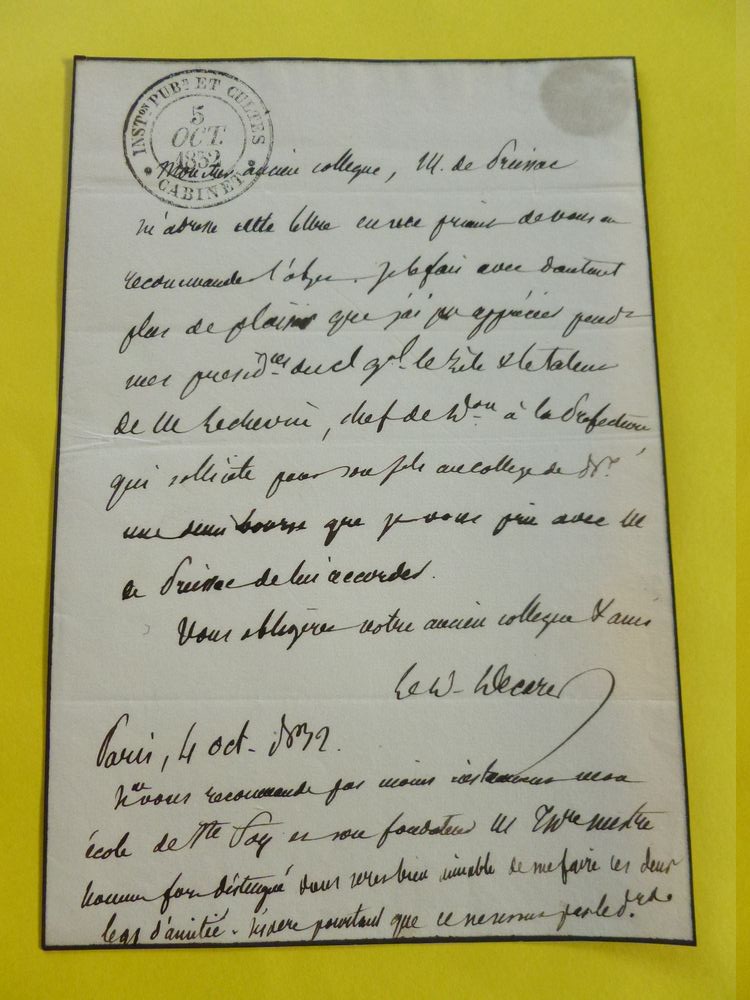 INSTon PUBe ET CULTES
5
OCT.
1852
CABINET
Mon cher ancien collegue, M. de Preissac
m'adresse cette lettre en me priant de vous en
recommander l'objet. Je le fais avec d'autant
plus de plaisir que j'ai pu apprécier pendt
mes presidces du cl gal le zèle & le talent
de M Lechevin, chef de don à la Prefecture
qui sollicite pour son fils au college de
une demi bourse que je vous prie avec M
de Preissac de lui accorder.
Vous obligerez votre ancien collegue & ami
Le
Paris, 4 oct. 1852.
vous recommande pas moins instamment mon
école de Ste Foy et son fondateur M
homme fort distingué vous seres bien aimable de me faire ces deux
legs d'amitié. J'espere pourtant que ce ne seront pas les